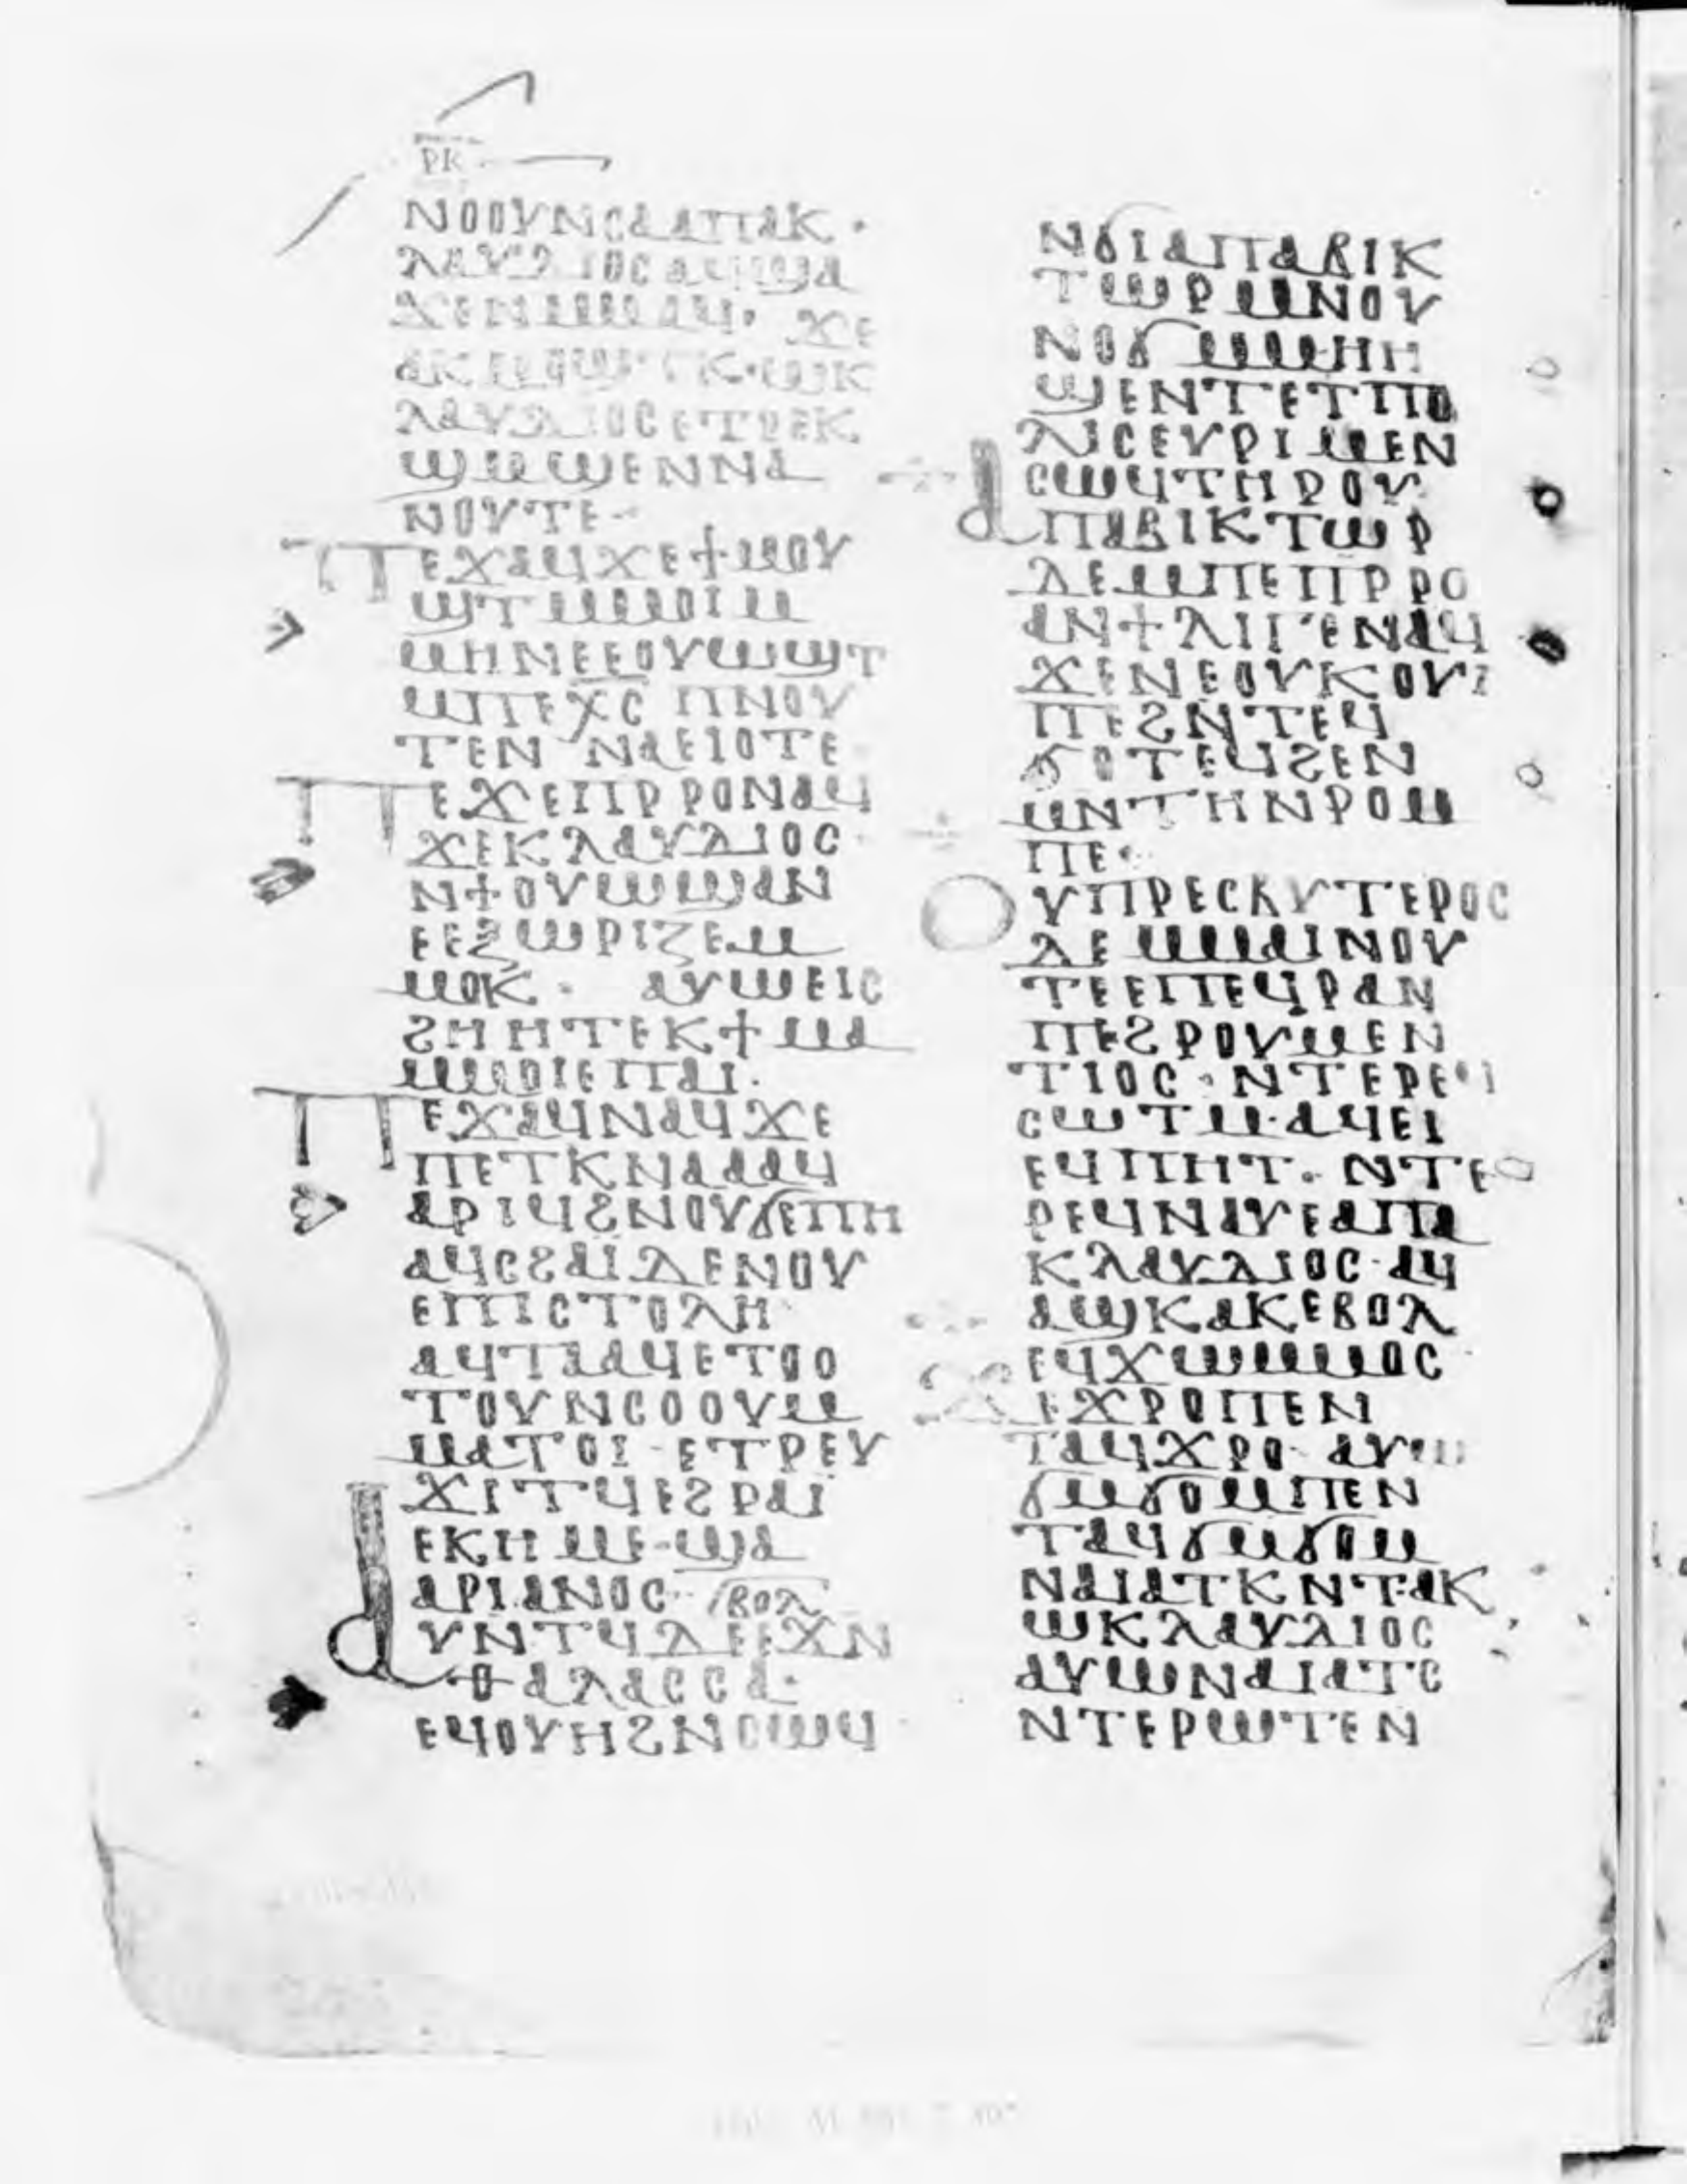 ⲣⲕ
ⲛⲟⲟⲩⲛⲥⲁⲁⲡⲁⲕ·
ⲗⲁⲩⲇⲓⲟⲥⲁϥϣⲁ
ϫⲉⲛⲙⲙⲁϥ· ϫⲉ
ⲗⲁⲩⲇⲓⲟⲥⲉⲧⲣⲉⲕ
ϣⲙϣⲉⲛⲛⲁ
ⲛⲟⲩⲧⲉ·
ⲡⲉϫⲁϥϫⲉϯⲙⲟⲩ
ϣⲧⲙⲙⲟⲓⲙ
ⲙⲏⲛⲉⲉⲟⲩⲱϣⲧ
ⲙⲡⲉⲭⲥ ⲡⲛⲟⲩ
ⲧⲉⲛ ⲛⲁⲉⲓⲟⲧⲉ
ⲡⲉϫⲉⲡⲣⲣⲟⲛⲁϥ
ϫⲉⲕⲗⲁⲩⲇⲓⲟⲥ
ⲛϯⲟⲩⲱϣⲁⲛ
ⲉⲉⲝⲱⲣⲓⲍⲉⲙ
ⲙⲟⲕ· ⲁⲩⲱⲉⲓⲥ
ϩⲏⲏⲧⲉⲕϯⲙⲁ
ⲙⲙⲟⲓⲉⲡⲁⲓ·
ⲡⲉϫⲁϥⲛⲁϥϫⲉ
ⲡⲉⲧⲕⲛⲁⲁⲁϥ
ⲁⲣⲓϥϩⲛⲟⲩϭⲉⲡⲏ
ⲁϥⲥϩⲁⲓ̈ⲇⲉⲛⲟⲩ
ⲉⲡⲓⲥⲧⲟⲗⲏ
ⲁϥⲧⲁⲁϥⲉⲧⲟⲟ
ⲧⲟⲩⲛⲥⲟⲟⲩⲙ
ⲙⲁⲧⲟⲓ·ⲉⲧⲣⲉⲩ
ϫⲓⲧϥⲉϩⲣⲁⲓ̈
ⲉⲕⲏⲙⲉ·ϣⲁ
ⲁⲣⲓⲁⲛⲟⲥ· ⲃⲟⲗ
ⲁⲩⲛⲧϥⲇⲉⲉϫⲛ
ⲑⲁⲗⲁⲥⲥⲁ·
ⲉϥⲟⲩⲏϩⲛⲥⲱϥ
ⲛϭⲓⲁⲡⲁⲃⲓⲕ
ⲧⲱⲣⲙⲛⲟⲩ
ⲛⲟϭⲙⲙⲏⲏ
ϣⲉⲛⲧⲉⲧⲡⲟ
ⲗⲓⲥⲉⲩⲣⲓⲙⲉⲛ
ⲥⲱϥⲧⲏⲣⲟⲩ
ⲁⲡⲁⲃⲓⲕⲧⲱⲣ
ⲇⲉⲙⲡⲉⲡⲣⲣⲟ
ⲁⲛϯⲗⲓⲅⲉⲛⲁϥ
ϫⲉⲛⲉⲟⲩⲕⲟⲩⲓ
ⲡⲉϩⲛⲧⲉϥ
ϭⲟⲧⲉϥϩⲉⲛ
ⲙⲛⲧⲏⲛⲣⲟⲙ
ⲡⲉ·
ⲟⲩⲡⲣⲉⲥⲃⲩⲧⲉⲣⲟⲥ
ⲇⲉ ⲙⲙⲁⲓⲛⲟⲩ
ⲧⲉⲉⲡⲉϥⲣⲁⲛ
ⲡⲉϩⲣⲟⲩⲙⲉⲛ
ⲧⲓⲟⲥ·ⲛⲧⲉⲣⲉϥ
ⲥⲱⲧⲙ·ⲁϥⲉⲓ
ⲉϥⲡⲏⲧ· ⲛⲧⲉ
ⲣⲉϥⲛⲁⲩⲉⲁⲡⲁ
ⲕⲗⲁⲩⲇⲓⲟⲥ·ⲁϥ
ⲁϣⲕⲁⲕⲉⲃⲟⲗ
ⲉϥϫⲱⲙⲙⲟⲥ
ϫⲉϫⲣⲟⲡⲉⲛ
ⲧⲁϥϫⲣⲟ· ⲁⲩⲱ
ϭⲙϭⲟⲙⲡⲉⲛ
ⲧⲁϥϭⲙϭⲟⲙ
ⲛⲁⲓⲁⲧⲕⲛⲧⲁⲕ
ⲱⲕⲗⲁⲩⲇⲓⲟⲥ
ⲁⲩⲱⲛⲁⲓⲁⲧⲥ
ⲛⲧⲉⲣⲱⲧⲉⲛ